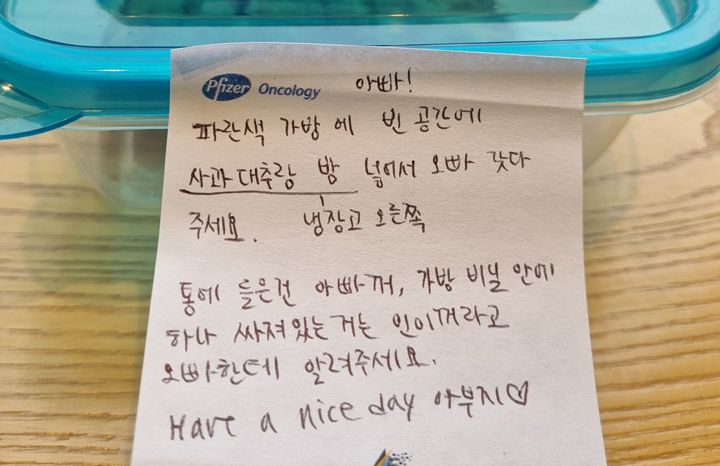 Pfizer Oncology 아빠!
파란색 가방에 빈 공간에
사과대추랑 빵 넣어서 오빠 갖다
주세요. 냉장고 오른쪽
통에 들은건 아빠꺼, 가방 비닐 안에
하나 싸져있는거는 인이꺼라고
오빠한테 알려주세요.
Have a nice day 아부지♡